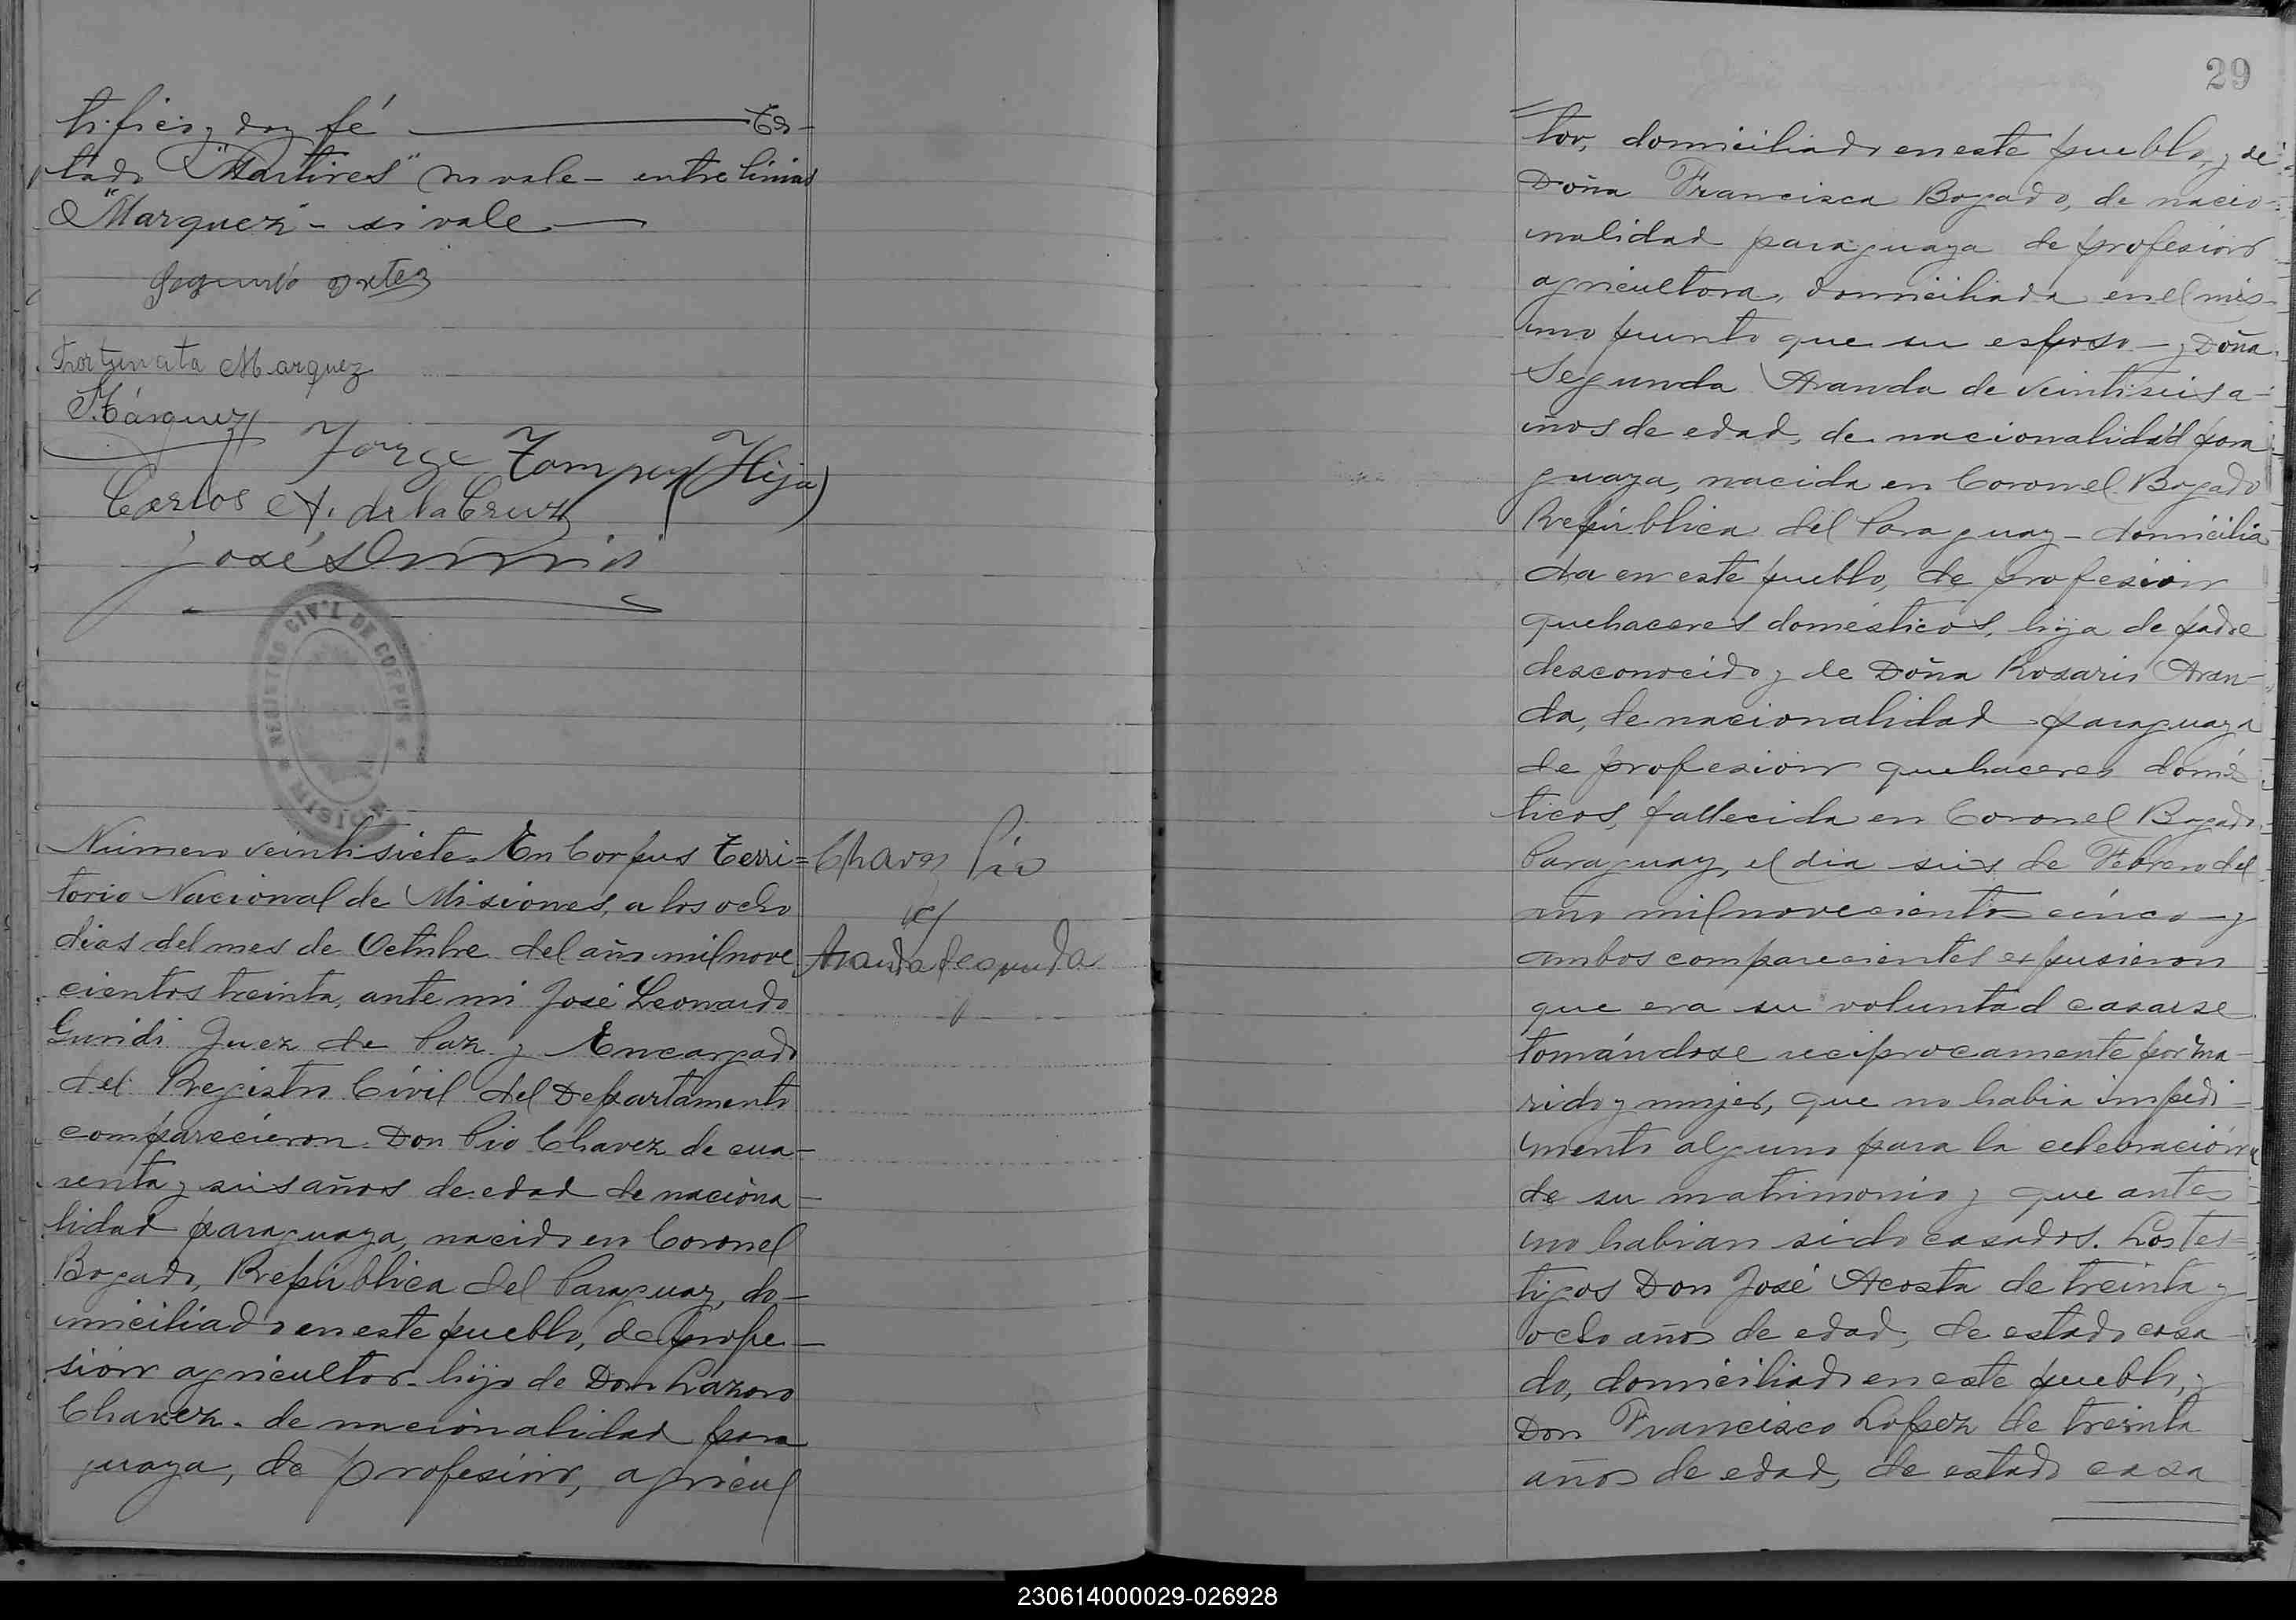 tifico y doy fé — Tes-
tado "Martires" no vale - entre lineas
"Marquez" - si vale —
Segundo
Fortunata Marquez
Márquez
Jorge (Hijo)
Carlos A. de la Cruz
José
REGISTRO CIVIL DE CORPUS * MISIONES *
Número veintisiete. En Corpus Terri=
torio Nacional de Misiones, a los ocho
dias del mes de Octubre del año mil nove
cientos treinta, ante mi José Leonardo
Guridi Juez de Paz y Encargado
del Registro Civil del Departamento
comparecieron Don Pio Chavez de cua-
renta y seis años de edad de naciona-
lidad paraguaya, nacido en Coronel
Bogado, República del Paraguay, do-
miciliado en este pueblo, de profe-
sión agricultor - hijo de Don Lazaro
Chavez - de nacionalidad para
guaya, de profesión, agricul
Chavez Pio
y
Aranda Segunda
29
tor, domiciliado en este pueblo, y de
Doña Francisca Bogado, de nacio-
nalidad paraguaya de profesión
agricultora, domiciliada en el mis-
mo punto que su esposo - y Doña
Segunda Aranda de veintiseis a-
ños de edad, de nacionalidad para
guaya, nacida en Coronel Bogado
República del Paraguay - domicilia
da en este pueblo, de profesión
quehaceres domésticos, hija de padre
desconocido y de Doña Rosario Aran-
da, de nacionalidad paraguaya
de profesión quehaceres domés
ticos, fallecida en Coronel Bogado
Paraguay, el dia seis de Febrero del
año mil novecientos cinco - y
ambos comparecientes expusieron
que era su voluntad casarse
tomándose reciprocamente por ma-
rido y mujer, que no habia impedi-
mento alguno para la celebración
de su matrimonio y que antes
no habian sido casados. Los tes-
tigos Don José Acosta de treinta y
ocho años de edad, de estado casa-
do, domiciliado en este pueblo, y
Don Francisco Lopez de treinta
años de edad, de estado casa
230614000029-026928